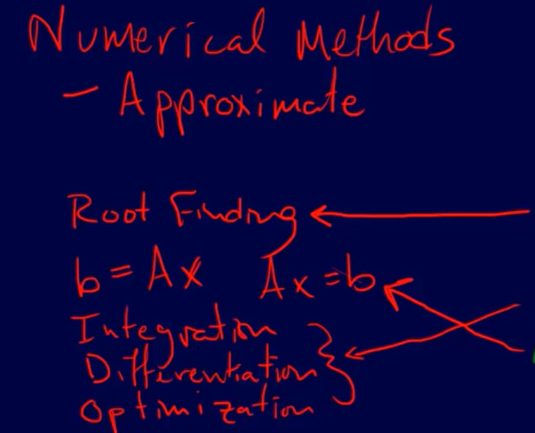 Numerical Methods
- Approximate
Root Finding
b = Ax Ax = b
Integration
Differentiation
Optimization